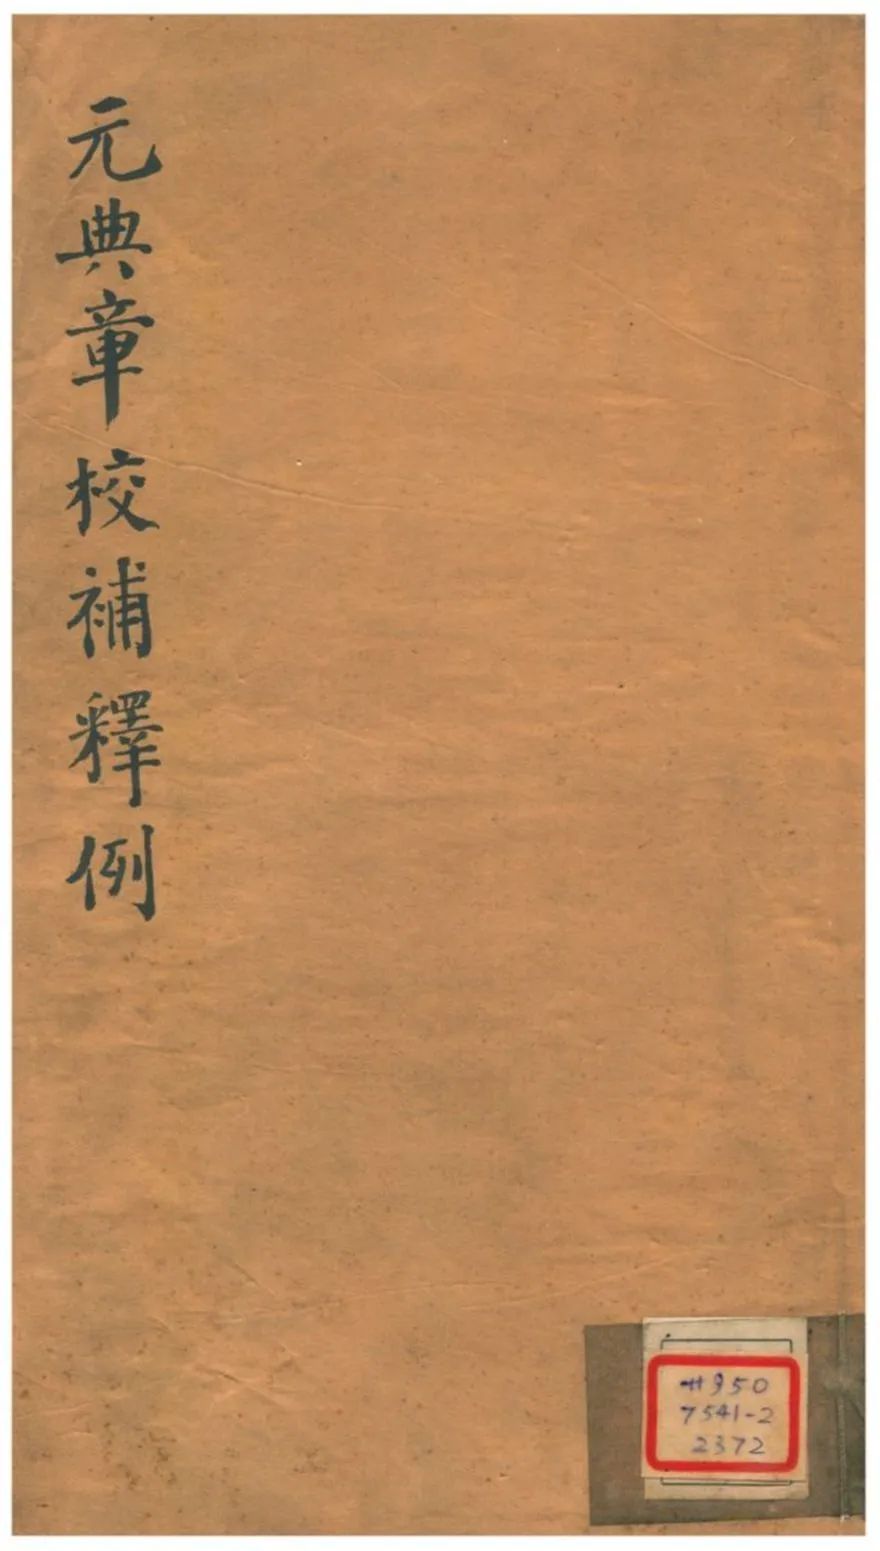 元典章校補釋例
950
7541-2
2372